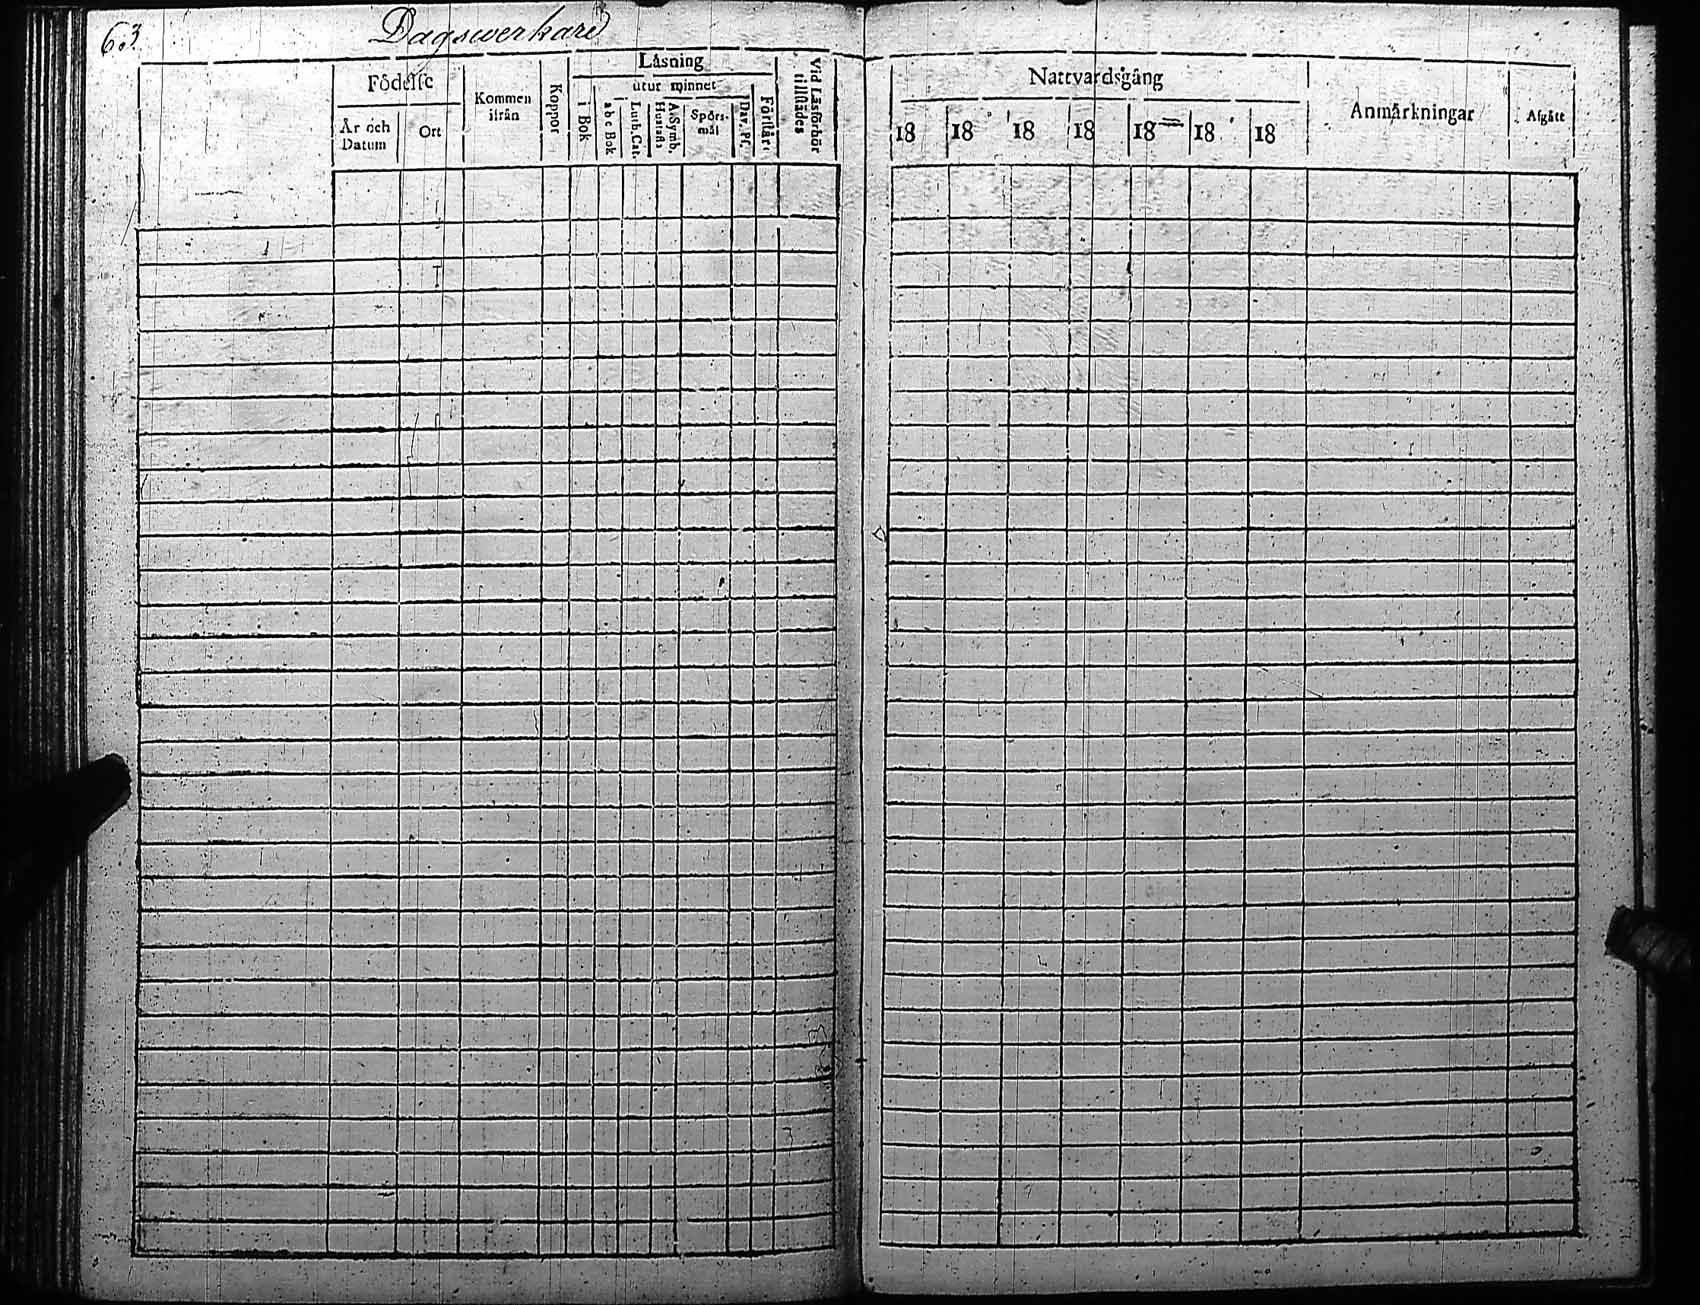 63 Dagswerkare
Födelse
År och Datum
Ort
Kommen ifrån
Koppor
Läsning
i Bok
utur minnet
abc Bok
Luth. Cat.
Hustafla
A. Symb.
Spörs-mål
Dav. Ps.
Förstår
Vid Läsförhör tillstädes
Nattvardsgång
18 18 18 18 18 18 18
Anmärkningar
Afgått